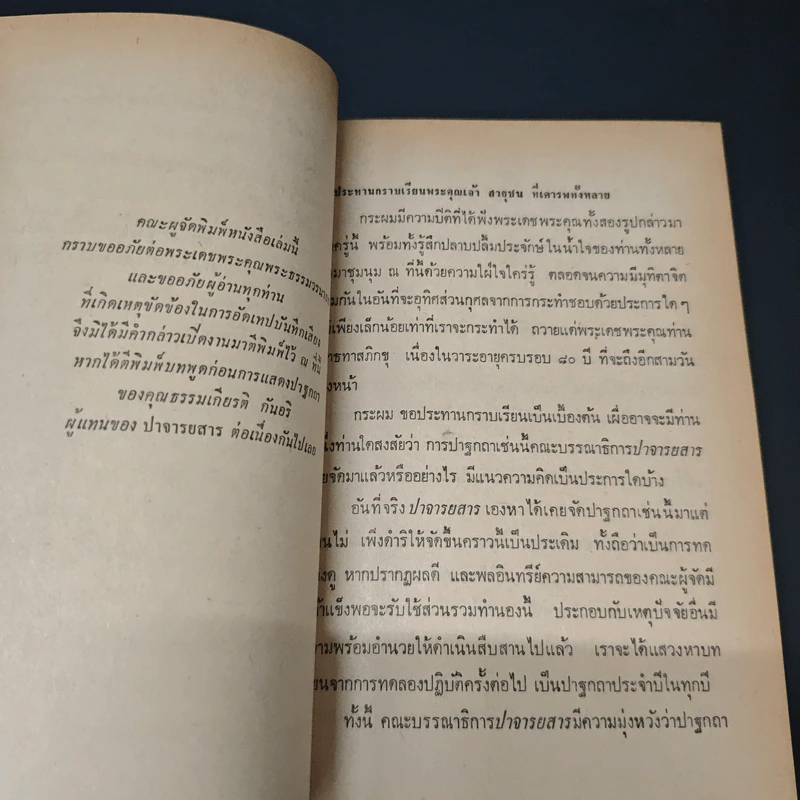 คณะผู้จัดพิมพ์หนังสือเล่มนี้
กราบขออภัยต่อพระเดชพระคุณพระธรรมวรนายก
และขออภัยผู้อ่านทุกท่าน
ที่เกิดเหตุขัดข้องในการอัดเทปบันทึกเสียง
จึงมิได้มีคำกล่าวเปิดงานมาตีพิมพ์ไว้ ณ ที่นี้
หากได้ตีพิมพ์บทพูดก่อนการแสดงปาฐกถา
ของคุณธรรมเกียรติ กันอริ
ผู้แทนของ ปาจารยสาร ต่อเนื่องกันไปเลย
ประทานกราบเรียนพระคุณเจ้า สาธุชน ที่เคารพทั้งหลาย
กระผมมีความปีติที่ได้ฟังพระเดชพระคุณทั้งสองรูปกล่าวมา
ครู่นี้ พร้อมทั้งรู้สึกปลาบปลื้มประจักษ์ในน้ำใจของท่านทั้งหลาย
มาชุมนุม ณ ที่นี้ด้วยความใฝ่ใจใคร่รู้ ตลอดจนความมีมุทิตาจิต
มกันในอันที่จะอุทิศส่วนกุศลจากการกระทำชอบด้วยประการใด ๆ
เพียงเล็กน้อยเท่าที่เราจะกระทำได้ ถวายแด่พระเดชพระคุณท่าน
ธทาสภิกขุ เนื่องในวาระอายุครบรอบ ๘๐ ปี ที่จะถึงอีกสามวัน
งหน้า
กระผม ขอประทานกราบเรียนเป็นเบื้องต้น เผื่ออาจจะมีท่าน
ท่านใดสงสัยว่า การปาฐกถาเช่นนี้คณะบรรณาธิการปาจารยสาร
ยจัดมาแล้วหรืออย่างไร มีแนวความคิดเป็นประการใดบ้าง
อันที่จริง ปาจารยสาร เองหาได้เคยจัดปาฐกถาเช่นนี้มาแต่
นไม่ เพิ่งดำริให้จัดขึ้นคราวนี้เป็นประเดิม ทั้งถือว่าเป็นการทด
งดู หากปรากฏผลดี และพลอินทรีย์ความสามารถของคณะผู้จัดมี
แข็งพอจะรับใช้ส่วนรวมทำนองนี้ ประกอบกับเหตุปัจจัยอื่นมี
ามพร้อมอำนวยให้ดำเนินสืบสานไปแล้ว เราจะได้แสวงหาบท
ยนจากการทดลองปฏิบัติครั้งต่อไป เป็นปาฐกถาประจำปีในทุกปี
ทั้งนี้ คณะบรรณาธิการปาจารยสารมีความมุ่งหวังว่าปาฐกถา